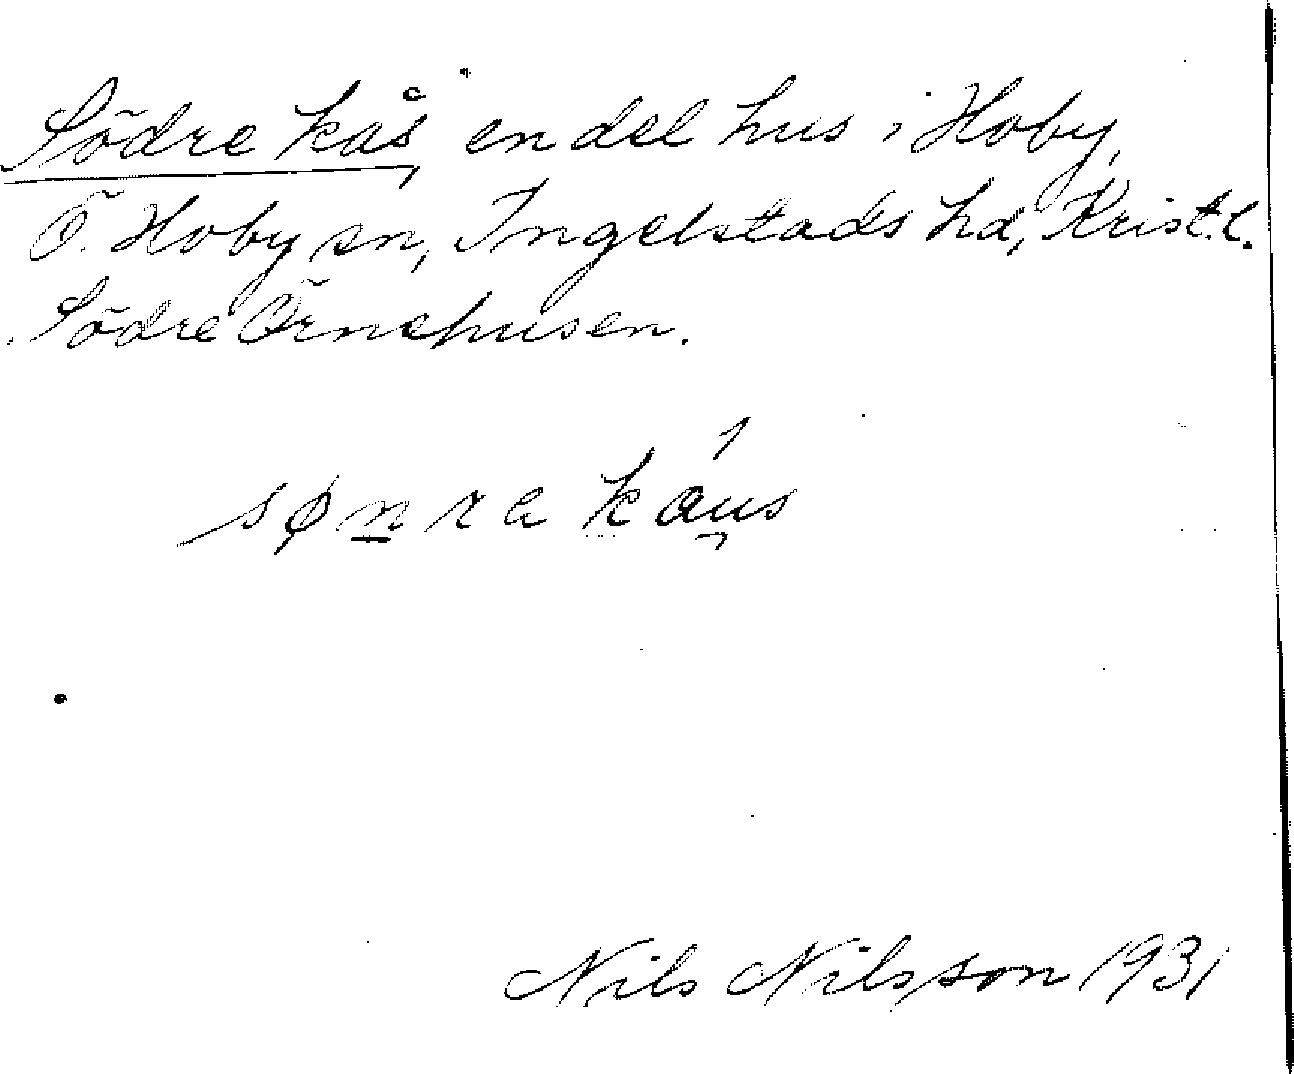 Södre kås, en del hus i Hoby,
Ö. Hoby sn, Ingelstads hd, Krist. l.
Södre Örnehusen.
sønra káus
Nils Nilsson 1931